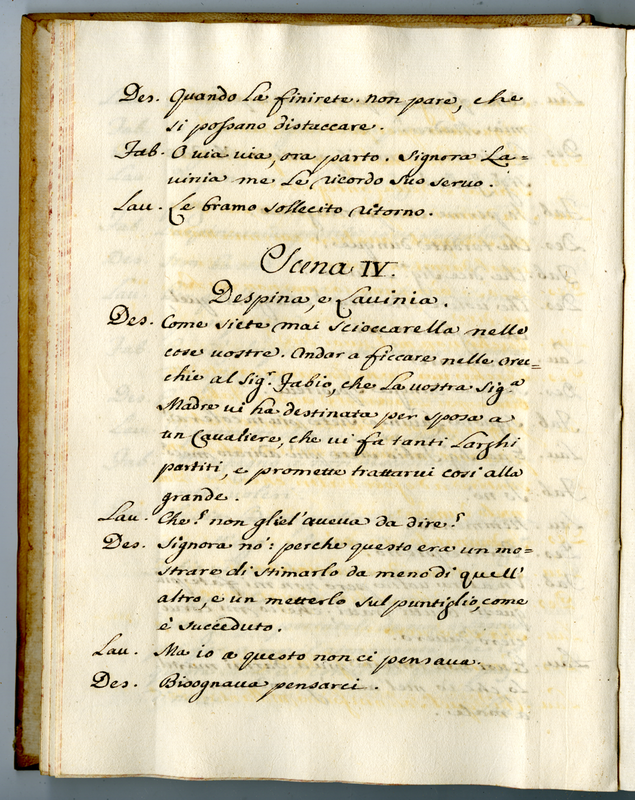 Des. Quando la finirete. non pare, che
si possano distaccare.
Fab. O via via, ora parto. Signora La=
vinia me le ricordo suo servo.
Lau. Le bramo sollecito ritorno.
Scena IV.
Despina, e Lauinia.
Des. Come siete mai scioccarella nelle
cose vostre. Andar a ficcare nelle orec=
chie al Sig.r Fabio, che la vostra Sig.a
Madre vi ha destinata per sposa a
un Cavaliere, che vi fa tanti larghi
partiti, e promette trattarui cosi alla
grande.
Lau. Che? non gliel'aueua da dire?
Des. Signora nò: perche questo era un mo=
strare di stimarlo da meno di quell'
altro, e un metterlo sul puntiglio, come
è succeduto.
Lau. Ma io a questo non ci pensaua.
Des. Bisognaua pensarci.